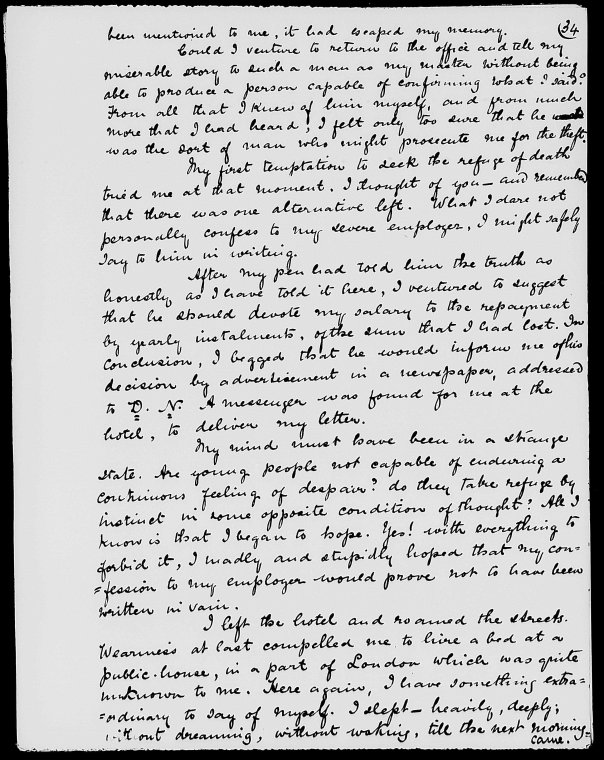 34
been mentioned to me, it had escaped my memory.
Could I venture to return to the office and tell my
miserable story to such a man as my master without being
able to produce a person capable of confirming what I said?
From all that I knew of him myself, and from much
more that I had heard, I felt only too sure that he
was the sort of man who might prosecute me for the theft.
My first temptation to seek the refuge of death
tried me at that moment. I thought of you — and remembered
that there was one alternative left. What I dare not
personally confess to my severe employer, I might safely
say to him in writing.
After my pen had told him the truth as
honestly as I have told it here, I ventured to suggest
that he should devote my salary to the repayment
by yearly instalments, of the sum that I had lost. In
conclusion, I begged that he would inform me of his
decision by advertisement in a newspaper, addressed
to D. N. A messenger was found for me at the
hotel, to deliver my letter.
My mind must have been in a strange
state. Are young people not capable of enduring a
continuous feeling of despair? do they take refuge by
instinct in some opposite condition of thought? All I
know is that I began to hope. Yes! with everything to
forbid it, I madly and stupidly hoped that my con-
=fession to my employer would prove not to have been
written in vain.
I left the hotel and roamed the streets.
Weariness at last compelled me to hire a bed at a
public-house, in a part of London which was quite
unknown to me. Here again, I have something extra=
=ordinary to say of myself. I slept — heavily, deeply;
without dreaming, without waking, till the next morning
came.